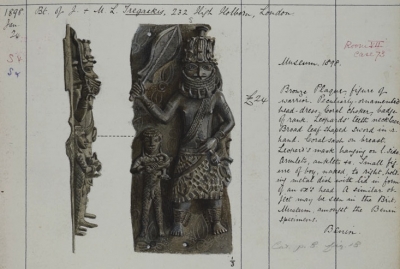 1898
Bt. of J. & M. L. Tregaskis, 232 High Holborn, London.
Jan.
54
54
54
Room VII
Case 73
Museum, 1898.
Bronze Plaque, figure of
warrior. Peculiarly ornamented
head-dress, Coral choker, badge
of rank. Leopards' teeth necklace.
Broad leaf shaped sword in r.
hand. Coral sash on breast.
Leopard's mask hanging on l. side.
Armlets, anklets &c. Small fig-
ure of boy, naked to right, hold-
ing metal dish with lid in form
of an ox's head. A similar ob-
ject may be seen in the Brit.
Museum, amongst the Benin
specimens.
Benin.